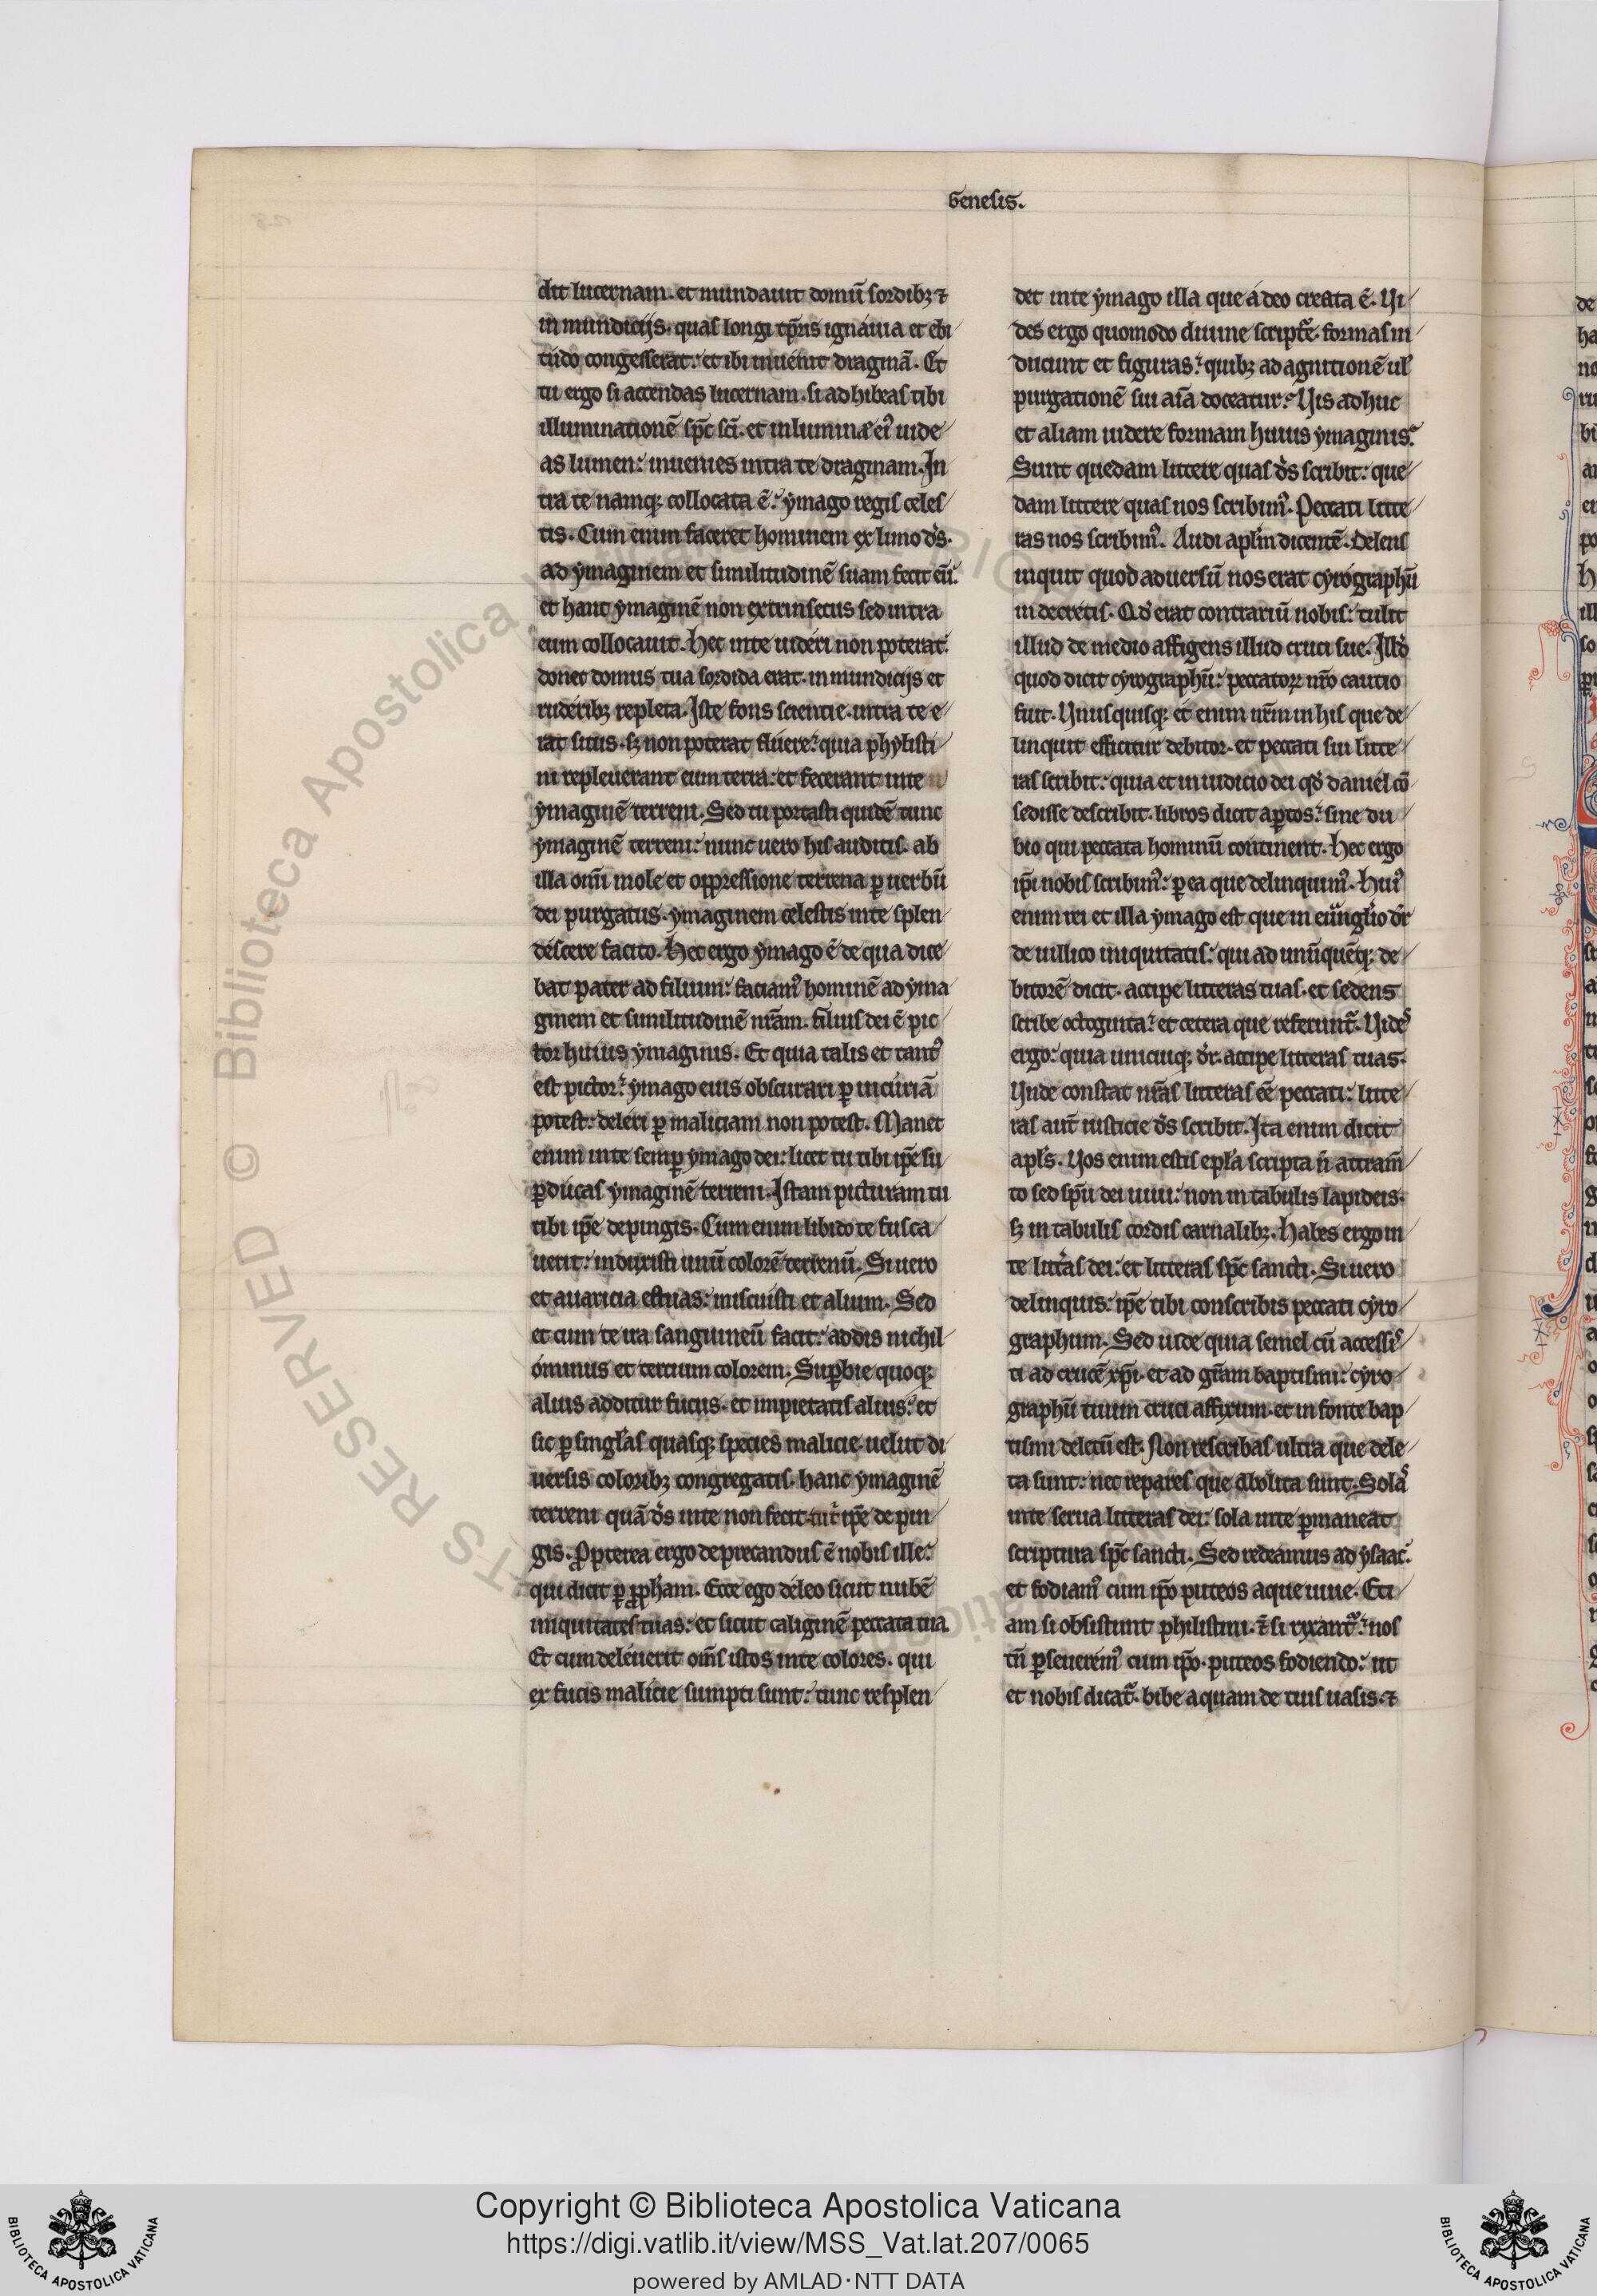 Genesis.
dit lucernam. et mundauit domū sordibꝫ ⁊
in mundicijs. quas longi tꝑris ignauia et ebi
tudo congesserat: et ibi inuenit dragmā. Et
tu ergo si accendas lucernam. si adhibeas tibi
illuminationē spc̄ sc̄i. et in lumine eiꝰ uide
as lumen: inuenies intra te dragmam. In
tra te namqꝫ collocata ē: ymago regis celes
tis. Cum enim faceret hominem ex limo ds̄.
ad ymaginem et similitudinē suam fecit eū:
et hanc ymaginē non extrinsecus sed intra
eum collocauit. Hec in te uideri non poterat:
donec domus tua sordida erat. in mundicijs et
ruderibꝫ repleta. Iste fons scientie. intra te e
rat situs. sꝫ non poterat fluere: quia phylisti
ni repleuerant eum terra: et fecerant in te
ymaginē terreni. Sed tu portasti quidē tunc
ymaginē terreni: nunc uero his auditis. ab
illa om̄i mole et oppressione terrena ꝑ uerbū
dei purgatus. ymaginem celestis in te splen
descere facito. Hec ergo ymago ē de qua dice
bat pater ad filium: faciamꝰ hominē ad yma
ginem et similitudinē nr̄am. filius dei ē pic
tor huius ymaginis. Et quia talis et tantꝰ
est pictor: ymago eius obscurari ꝑ incuriā
potest: deleri ꝑ maliciam non potest. Manet
enim in te semꝑ ymago dei: licet tu tibi ip̄e su
ꝑducas ymaginē terreni. Istam picturam tu
tibi ip̄e depingis. Cum enim libido te fusca
uerit: induxisti unū colorē terrenū. Si uero
et auaricia estuas: miscuisti et alium. Sed
et cum te ira sanguineū facit: addis nichil
ominus et tertium colorem. Suꝑbie quoqꝫ
alius additur fucus. et impietatis alius: et
sic ꝑ singl̄as quasqꝫ species malicie. uelut di
uersis coloribꝫ congregatis. hanc ymaginē
terreni quā ds̄ in te non fecit. ip̄e depin
gis. Ꝓpterea ergo deprecandus ē nobis ille:
qui dicit ꝑ ꝓph̄am. Ecce ego deleo sicut nubē
iniquitates tuas: et sicut caliginē peccata tua.
Et cum deleuerit om̄s istos in te colores. qui
ex fucis malicie sumpti sunt: tunc resplen
det in te ymago illa que a deo creata ē. Vi
des ergo quomodo diuine scriptᵉ̄. formas in
ducunt et figuras: quibꝫ ad agnitionē ul̄
purgationē sui aīa doceatur. Vis adhuc
et aliam uidere formam huius ymaginis.
Sunt quedam littere quas ds̄ scribit: que
dam littere quas nos scribimꝰ. Peccati litte
ras nos scribimꝰ. Audi apl̄m dicentē. Delens
inquit quod aduersū nos erat cyrographū
in decretis. Qd̄ erat contrariū nobis: tulit
illud de medio affigens illud cruci sue. Illd̄
quod dicit cyrographū: peccatoꝝ nr̄o cautio
fuit. Vnusquisqꝫ et enim nr̄m in his que de
linquit efficitur debitor. et peccati sui litte
ras scribit: quia et in iudicio dei qd̄ daniel cō
sedisse describit. libros dicit aꝑtos: sine du
bio qui peccata hominū continent. Hec ergo
ip̄i nobis scribimꝰ: ꝑ ea que delinquimꝰ. Huiꝰ
enim rei et illa ymago est que in euꝰnglio dr̄
de uillico iniquitatis: qui ad unū quēqꝫ de
bitorē dicit. accipe litteras tuas. et sedens
scribe octoginta: et cetera que referunt᷑. Vides
ergo: quia unicuiqꝫ dr̄. accipe litteras tuas.
Vnde constat nr̄as litteras eē peccati: litte
ras aut̄ iusticie ds̄ scribit. Ita enim dicit
apl̄s. Vos enim estis epl̄a scripta n̄ attram̄
to sed sp̄u dei uiui: non in tabulis lapideis.
sꝫ in tabulis cordis carnalibꝫ. Habes ergo in
te litt̄as dei: et litteras spc̄ sancti. Si uero
delinquis: ip̄e tibi conscribis peccati cyro
graphum. Sed uide quia semel cū accessis
ti ad crucē xp̄i. et ad gr̄am baptismi: cyro
graphū tuum cruci affixum. et in fonte bap
tismi deletū est. Non rescribas ultra que dele
ta sunt: nec repares que abolita sunt. Solas
in te serua litteras dei: sola in te ꝑmaneat
scriptura spc̄ sancti. Sed redeamus ad ysaac:
et fodiamꝰ cum ip̄o puteos aque uiue. Eti
am si obsistunt philistini. ⁊ si rixant᷑: nos
tn̄ ꝑseueremꝰ cum ip̄o. puteos fodiendo: ut
et nobis dicat᷑. bibe aquam de tuis uasis. ⁊
© Biblioteca Apostolica Vaticana
Copyright © Biblioteca Apostolica Vaticana
https://digi.vatlib.it/view/MSS_Vat.lat.207/0065
powered by AMLAD·NTT DATA
BIBLIOTECA APOSTOLICA VATICANA
BIBLIOTECA APOSTOLICA VATICANA